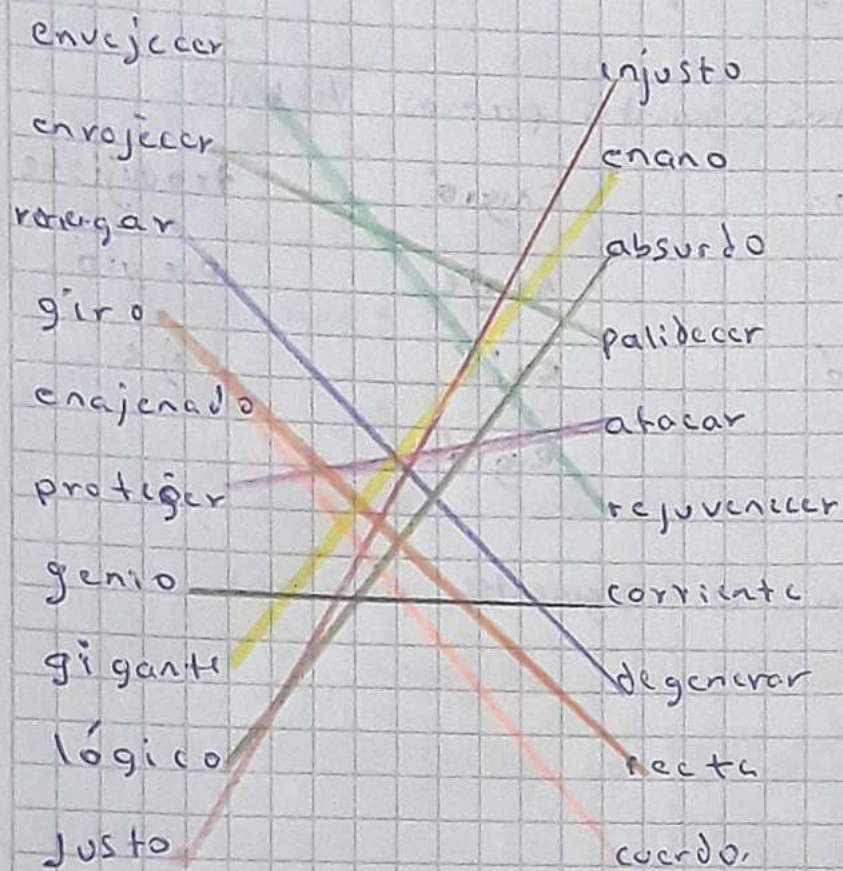 envejecer
enrojecer
giro
enajenado
proteger
genio
gigante
lógico
justo
injusto
enano
absurdo
palidecer
atacar
rejuvenecer
corriente
degenerar
recta
cuerdo.